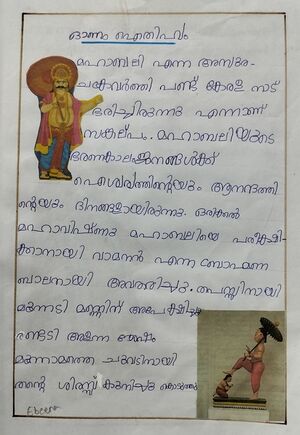 ഓണം ഐതിഹ്യം
മഹാബലി എന്ന അസുര-
ചക്രവർത്തി പണ്ട് കേരള നാട്
ഭരിച്ചിരുന്നു എന്നാണ്
സങ്കല്പം. മഹാബലിയുടെ
ഭരണകാലം ജനങ്ങൾക്ക്
ഐശ്വര്യത്തിന്റെയും ആനന്ദത്തി
ന്റെയും ദിനങ്ങളായിരുന്നു. ഒരിക്കൽ
മഹാവിഷ്ണു മഹാബലിയെ പരീക്ഷി-
ക്കാനായി വാമനൻ എന്ന ബ്രാഹ്മണ
ബാലനായി അവതരിച്ചു. തപസ്സിനായി
മൂന്നടി മണ്ണിന് അപേക്ഷിച്ചു
രണ്ടടി അളന്ന ശേഷം
മൂന്നാമത്തെ ചുവടിനായി
തന്റെ ശിരസ്സ് കുനിച്ചു കൊടുത്തു